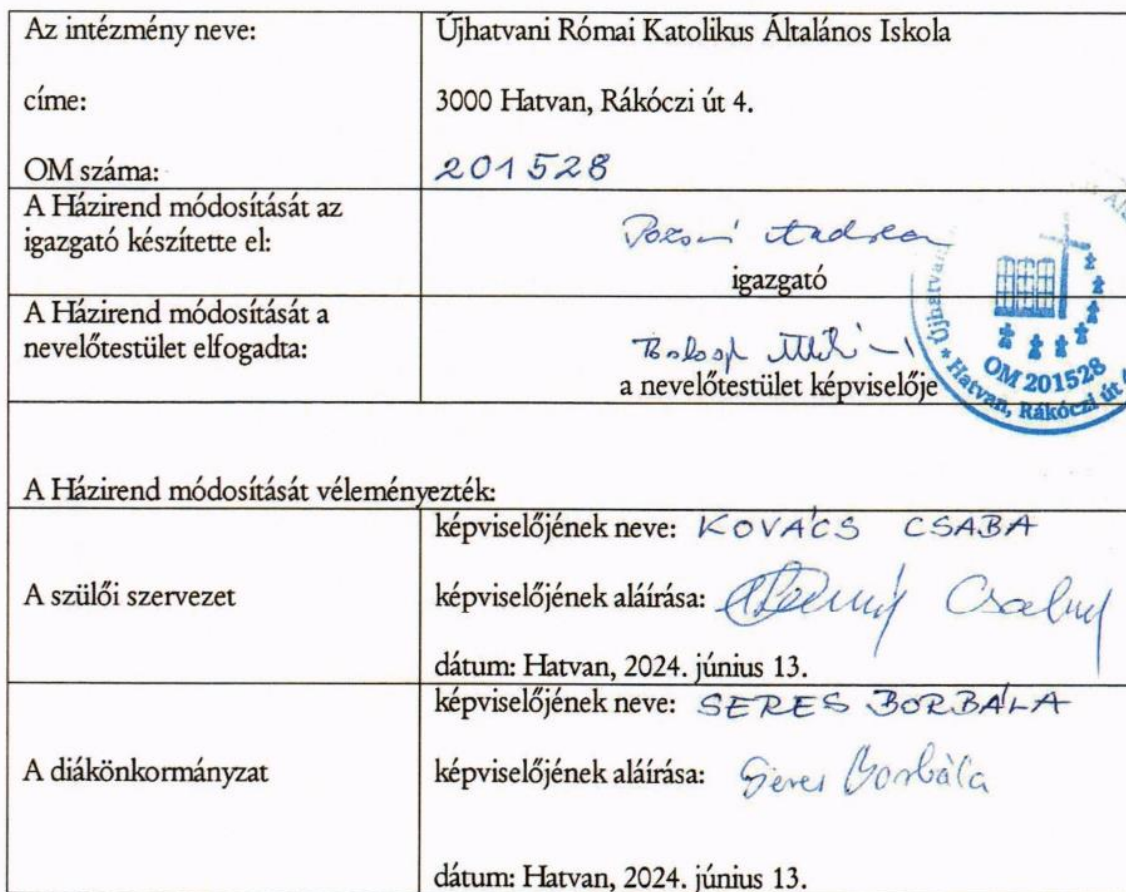 Az intézmény neve: Újhatvani Római Katolikus Általános Iskola
címe: 3000 Hatvan, Rákóczi út 4.
OM száma: 201528
A Házirend módosítását az
igazgató készítette el:
Andrea
igazgató
A Házirend módosítását a
nevelőtestület elfogadta:
a nevelőtestület képviselője
Újhatvani
OM 201528
* Hatvan, Rákóczi út
A Házirend módosítását véleményezték:
A szülői szervezet
képviselőjének neve: KOVÁCS CSABA
képviselőjének aláírása: Csaba
dátum: Hatvan, 2024. június 13.
A diákönkormányzat
képviselőjének neve: SERES BORBÁLA
képviselőjének aláírása: Seres Borbála
dátum: Hatvan, 2024. június 13.